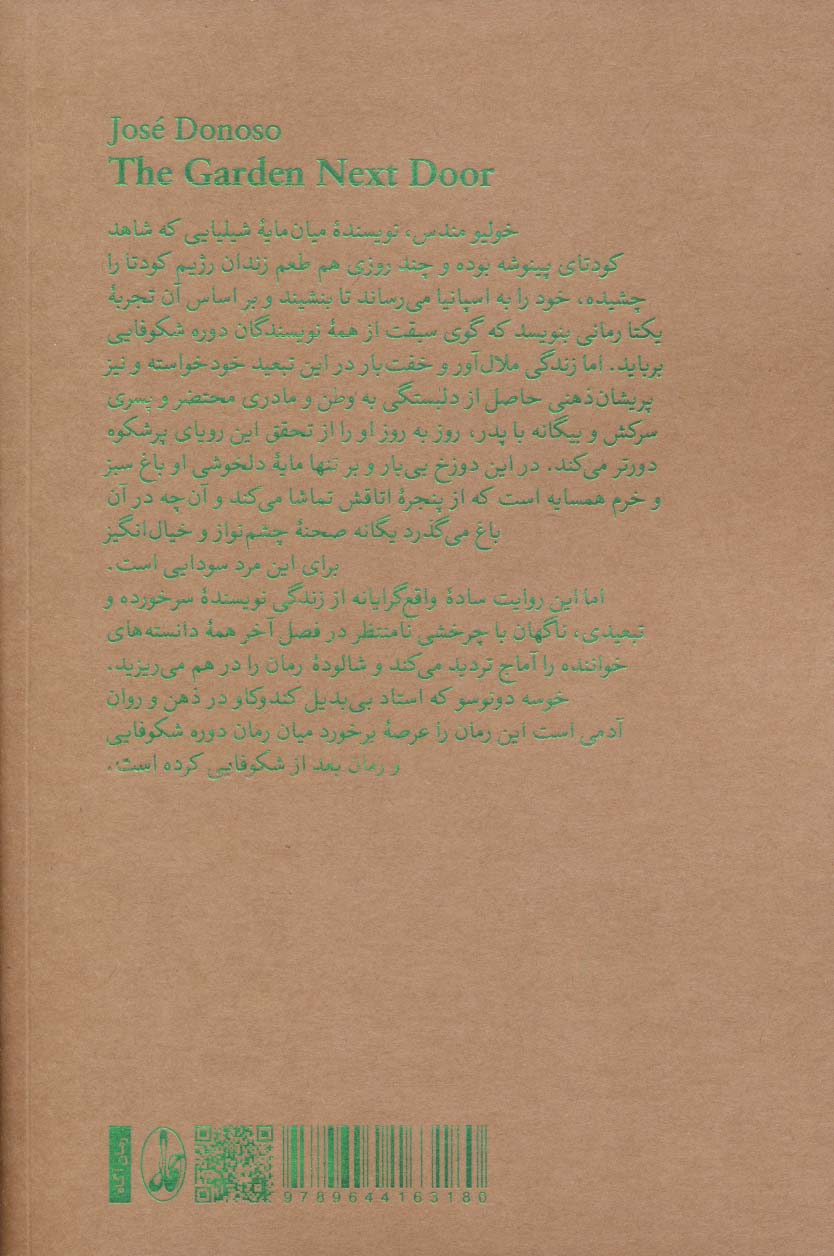 José Donoso
The Garden Next Door
خولیو مندس، نویسندهٔ میان‌مایهٔ شیلیایی که شاهد
کودتای پینوشه بوده و چند روزی هم طعم زندان رژیم کودتا را
چشیده، خود را به اسپانیا می‌رساند تا بنشیند و بر اساس آن تجربهٔ
یکتا رمانی بنویسد که گوی سبقت از همهٔ نویسندگان دوره شکوفایی
برباید. اما زندگی ملال‌آور و خفت‌بار در این تبعید خودخواسته و نیز
پریشان‌ذهنی حاصل از دلبستگی به وطن و مادری محتضر و پسری
سرکش و بیگانه با پدر، روز به روز او را از تحقق این رویای پرشکوه
دورتر می‌کند. در این دوزخ بی‌بار و بر تنها مایهٔ دلخوشی او باغ سبز
و خرم همسایه است که از پنجرهٔ اتاقش تماشا می‌کند و آن‌چه در آن
باغ می‌گذرد یگانه صحنهٔ چشم‌نواز و خیال‌انگیز
برای این مرد سودایی است.
اما این روایت سادهٔ واقع‌گرایانه از زندگی نویسندهٔ سرخورده و
تبعیدی، ناگهان با چرخشی نامنتظر در فصل آخر همهٔ دانسته‌های
خواننده را آماج تردید می‌کند و شالودهٔ رمان را در هم می‌ریزید.
خوسه دونوسو که استاد بی‌بدیل کندوکاو در ذهن و روان
آدمی است این رمان را عرصهٔ برخورد میان رمان دوره شکوفایی
و رمان بعد از شکوفایی کرده است.
رمان آگاه
9789644163180